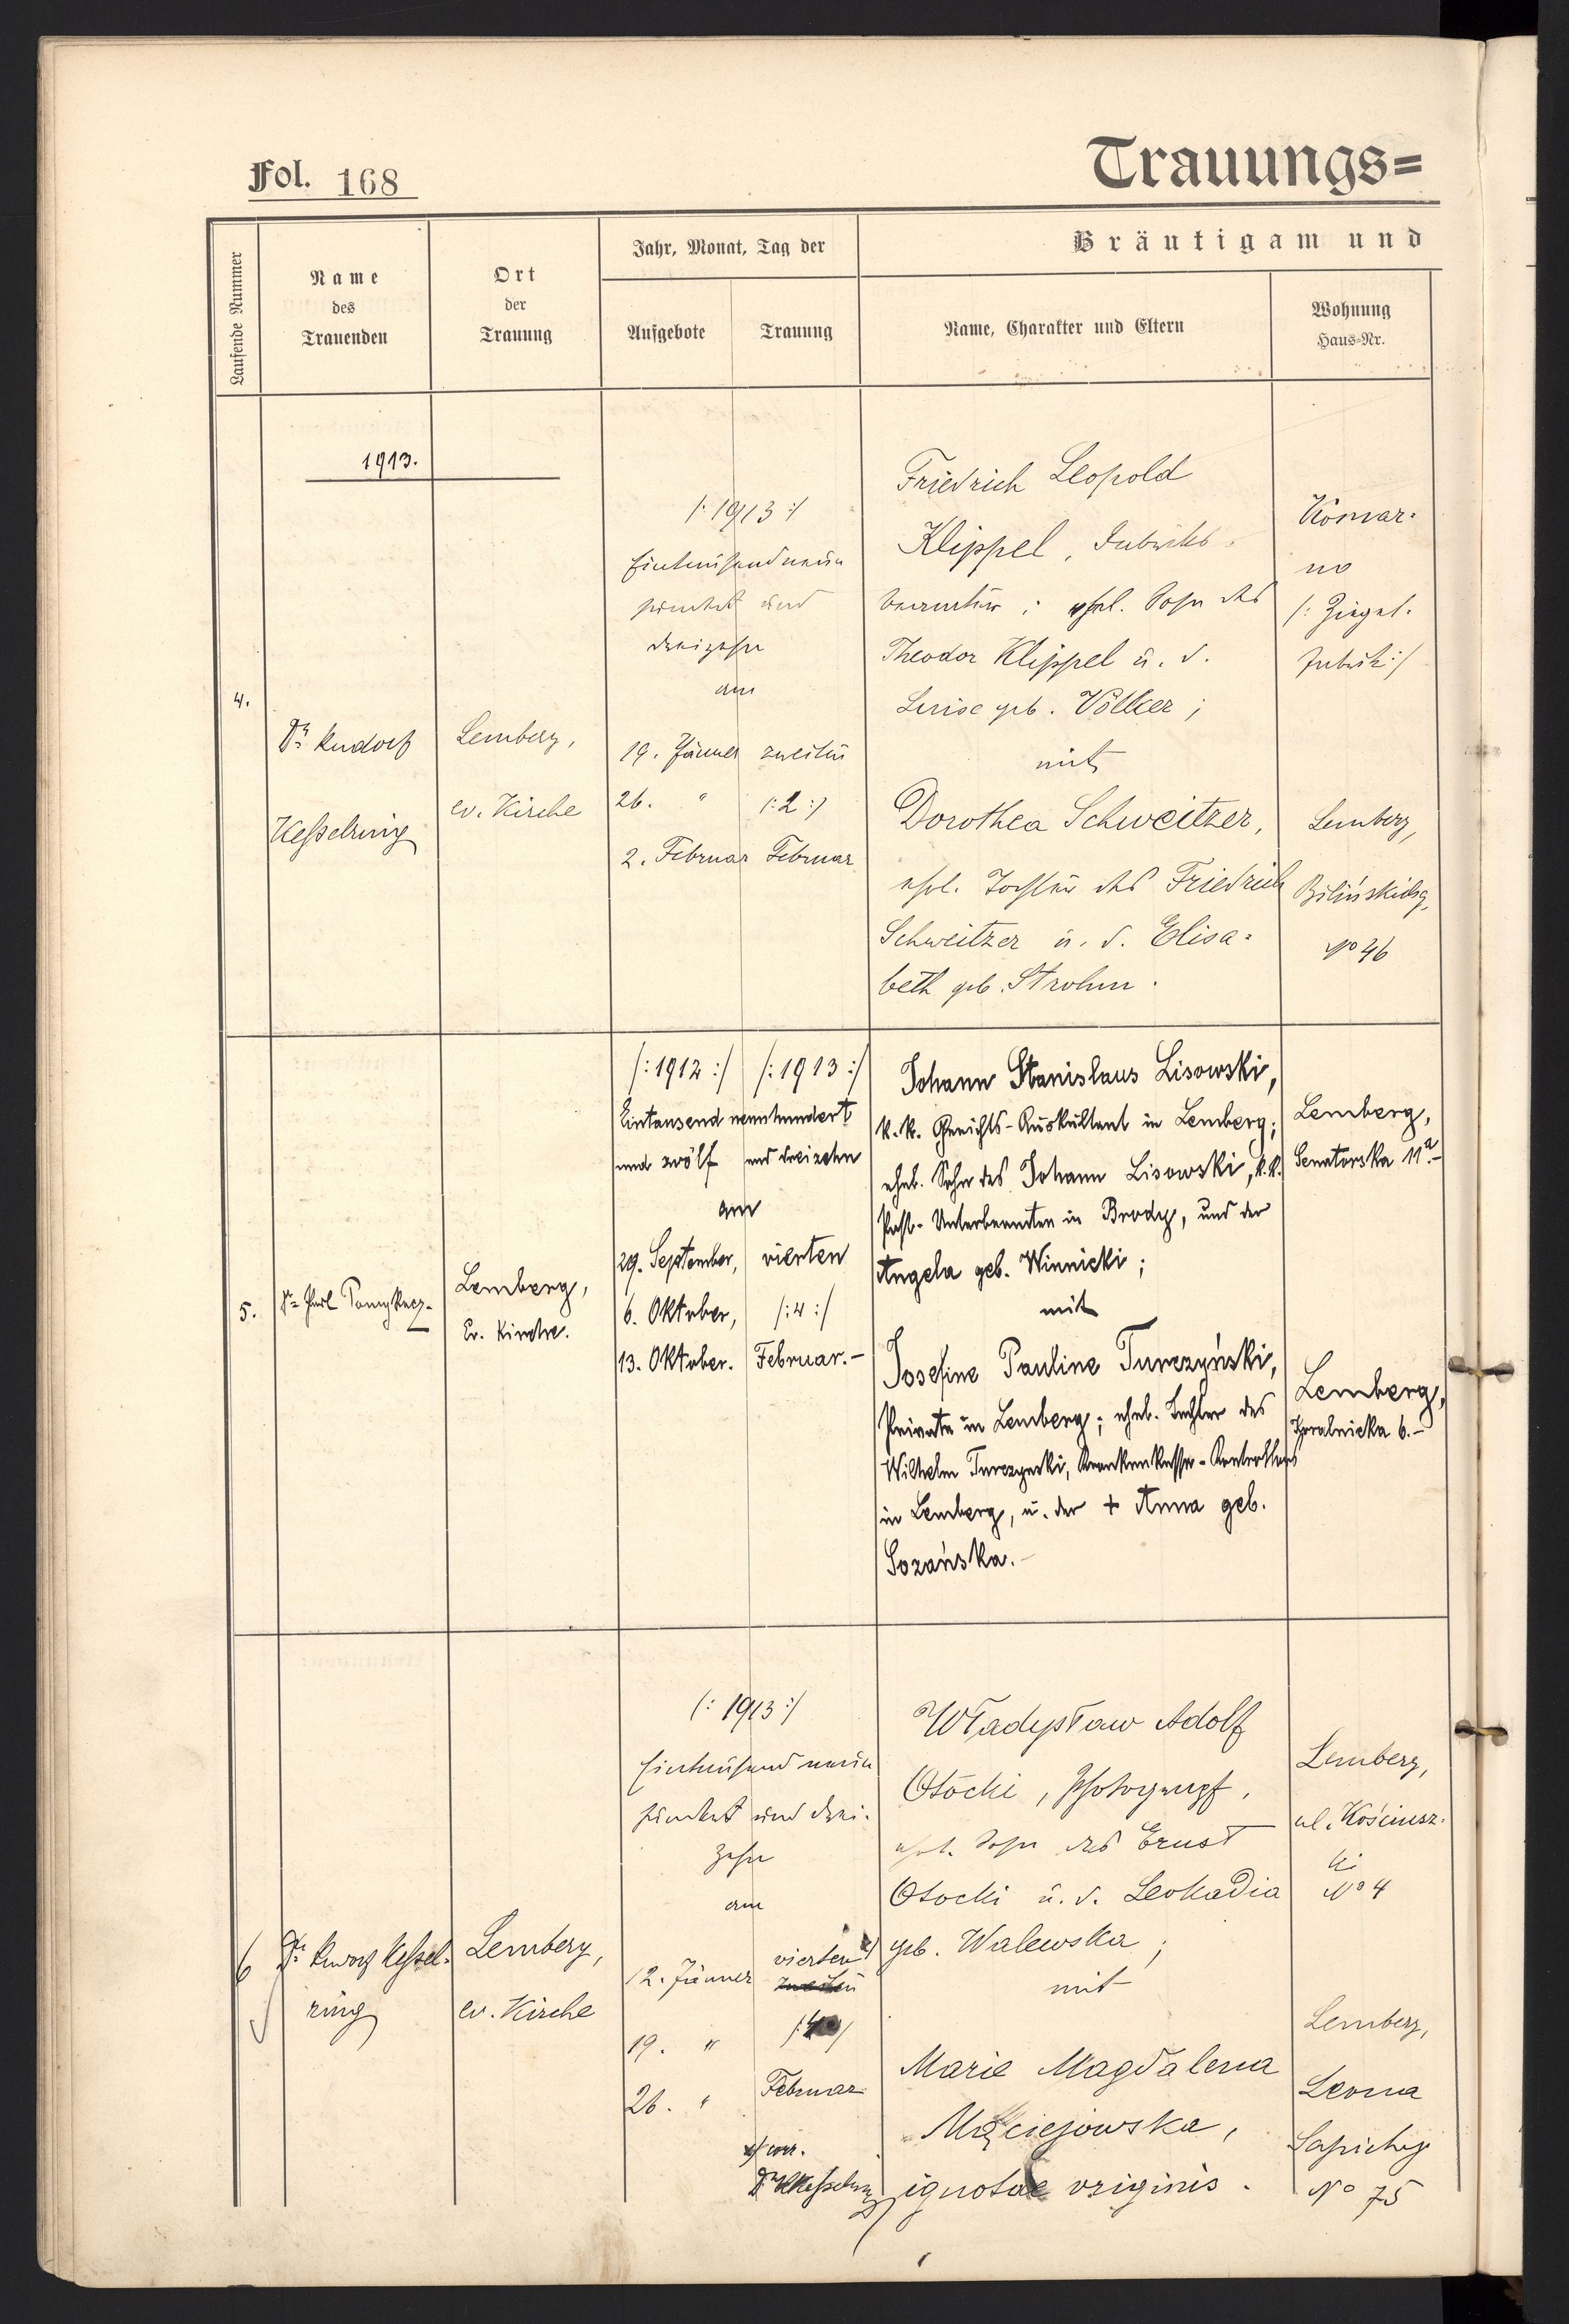 Fol. 168
Trauungs=
Laufende Nummer
Name
des
Trauenden
Ort
der
Trauung
Jahr, Monat, Tag der
Aufgebote
Trauung
Bräutigam und
Name, Charakter und Eltern
Wohnung
Haus-Nr.
1913.
4.
Dr. Rudolf
Kesselring
Lemberg,
ev. Kirche
/: 1913 :/
Eintausendneun
hundert und
dreizehn
am
19. Jänner
26. "
2. Februar
zweiten
/: 2 :/
Februar
Friedrich Leopold
Klippel, Fabriks-
; ehel. Sohn des
Theodor Klippel u. d.
Luise geb. Völker;
mit
Dorothea Schweitzer,
ehel. Tochter des Friedrich
Schweitzer u. d. Elisa=
beth geb. Strohm.
Komar=
no
/: Ziegel=
fabrik :/
Lemberg,
Bilińskichg,
No 46
5.
Dr. Paul
Lemberg,
Ev. Kirche.
/: 1912 :/
/: 1913 :/
Eintausend neunhundert
und zwölf
und dreizehn
am
29. September,
6. Oktober,
13. Oktober.
vierten
/: 4 :/
Februar.-
Johann Stanislaus Lisowski,
k.k. Gerichts-Auskultant in Lemberg;
ehel. Sohn des Johann Lisowski, k.k.
Post-Unterbeamten in Brody, und der
Angela geb. Winnicki;
mit
Josefine Pauline Turczyński,
Private in Lemberg; ehel. Tochter des
Wilhelm Turczyński, Krankenkasse-Kontrollors
in Lemberg, u. der + Anna geb.
Sozańska.-
Lemberg,
Senatorska 11a.-
Lemberg,
6.-
6
Dr. Rudolf Kessel-
ring
Lemberg,
ev. Kirche
/: 1913 :/
Eintausend neun
hundert und drei-
zehn
am
12. Jänner
19. "
26. "
vierten x/
zweiten
/: 4 :/
Februar
x/ corr.
Dr. RKesselring
Władysław Adolf
Otocki, Photograph,
ehel. Sohn des Ernst
Otocki u. d. Leokadia
geb. Walewska;
mit
Marie Magdalena
Maciejowska,
ignotae originis.
Lemberg,
ul. Kościusz=
ki
No 4
Lemberg,
Leona
Sapiehy
No 75